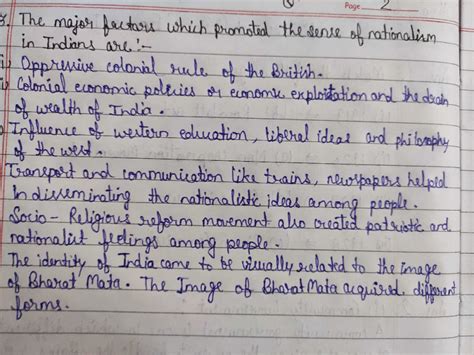 Page 2
3. The major factors which promoted the sense of nationalism
in Indians are :-
i) Oppressive colonial rule of the British.
ii) Colonial economic policies or economic exploitation and the drain
of wealth of India.
Influence of western education, liberal ideas and philosophy
of the west.
Transport and communication like trains, newspapers helped
in disseminating the nationalistic ideas among people.
Socio - Religious reform movement also created patriotic and
nationalist feelings among people.
The identity of India came to be visually related to the image
of Bharat Mata. The Image of Bharat Mata acquired different
forms.